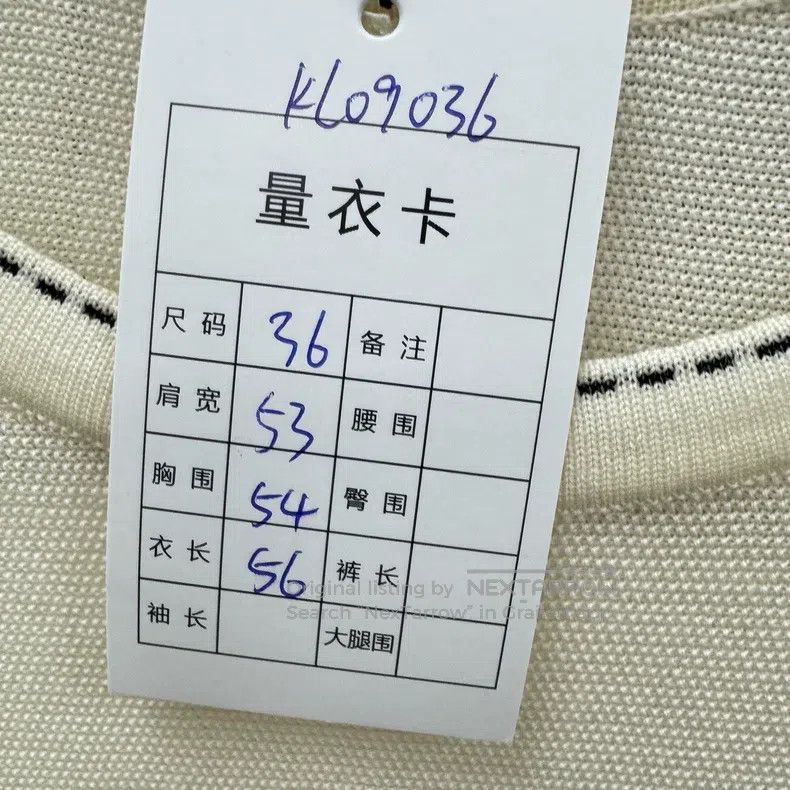 KL09036
量衣卡
尺码 36 备注
肩宽 53 腰围
胸围 54 臀围
衣长 56 裤长
袖长 大腿围
Original listing by NEXTARROW
Search "NexTarrow" in